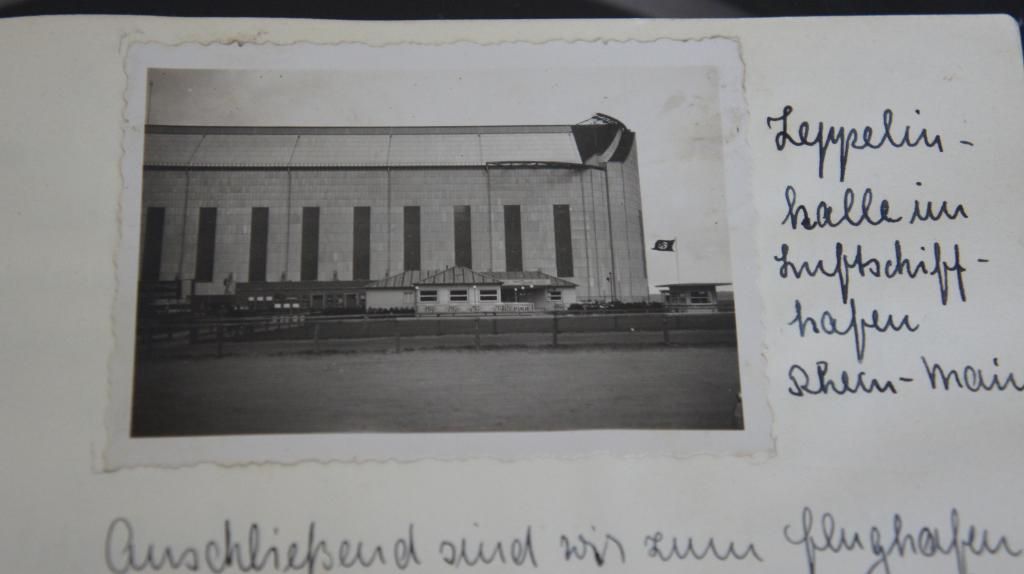 Zeppelin-
halle im
Luftschiff-
hafen
Rhein-Main
Anschließend sind wir zum Flughafen